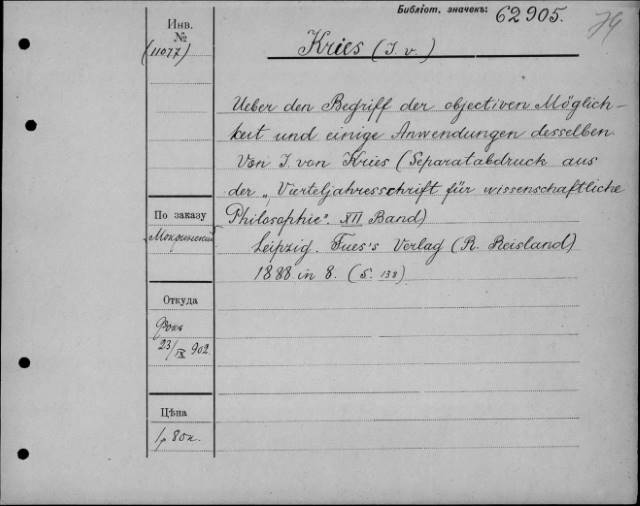 Библіот. значекъ: 62905.
79
Инв. №
(11077)
Kries (J. v.)
Ueber den Begriff der objectiven Möglich-
keit und einige Anwendungen desselben
Von J. von Kries (Separatabdruck aus
der „Vierteljahresschrift für wissenschaftliche
Philosophie". XII Band)
Leipzig. Fues's Verlag (R. Reisland)
1888 in 8. (S. 138)
По заказу
Мокринскій
Откуда
Фокъ
23/IX 902.
Цѣна
1 р 80 к.